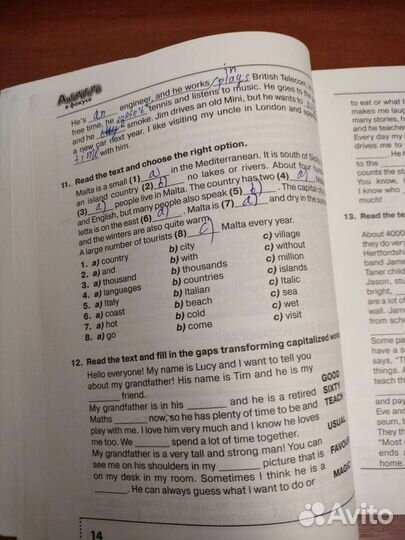 в фокусе
He's an engineer, and he works in British Telecom
free time, he plays tennis and listens to music. He goes to the
and he smoke. Jim drives an old Mini, but he wants to
a new car next year. I like visiting my uncle in London and
time with him.
11. Read the text and choose the right option.
Malta is a small (1) a) in the Mediterranean. It is south of
an island country (2) b) no lakes or rivers. About four
(3) a) people live in Malta. The country has two (4) a)
and English, but many people also speak (5) b). The capital
letta is on the east (6) a). Malta is (7) a) and dry in the
and the winters are also quite warm.
A large number of tourists (8) c) Malta every year.
1. a) country b) city c) village
2. a) and b) with c) without
3. a) thousand b) thousands c) million
4. a) languages b) countries c) islands
5. a) Italy b) Italian c) Italic
6. a) coast b) beach c) sea
7. a) hot b) cold c) wet
8. a) go b) come c) visit
12. Read the text and fill in the gaps transforming capitalized
Hello everyone! My name is Lucy and I want to tell you
about my grandfather! His name is Tim and he is my
friend. GOOD
My grandfather is in his and he is a retired SIXTY
Maths now, so he has plenty of time to be and TEACH
play with me. I love him very much and I know he loves
me too. We spend a lot of time together. USUAL
My grandfather is a very tall and strong man! You can
see me on his shoulders in my picture that is FAVOUR
on my desk in my room. Sometimes I think he is a
. He can always guess what I want to do or MAGIC
14
to eat or what I
makes me laug
many stories, h
and he teache
Every day my
drives me to
He is
to the
counts the sta
You know,
know I
when I
13. Read the te
About 4000
they do very
Hertfordshi
band Jame
Taner child
Jason, stu
bright,
are a lot of
wall. Jame
from sche
Some pa
have a st
says, "T
things.
teach th
and pay
Eve and
seum, l
They th
"Most
ends a
home.
Avito